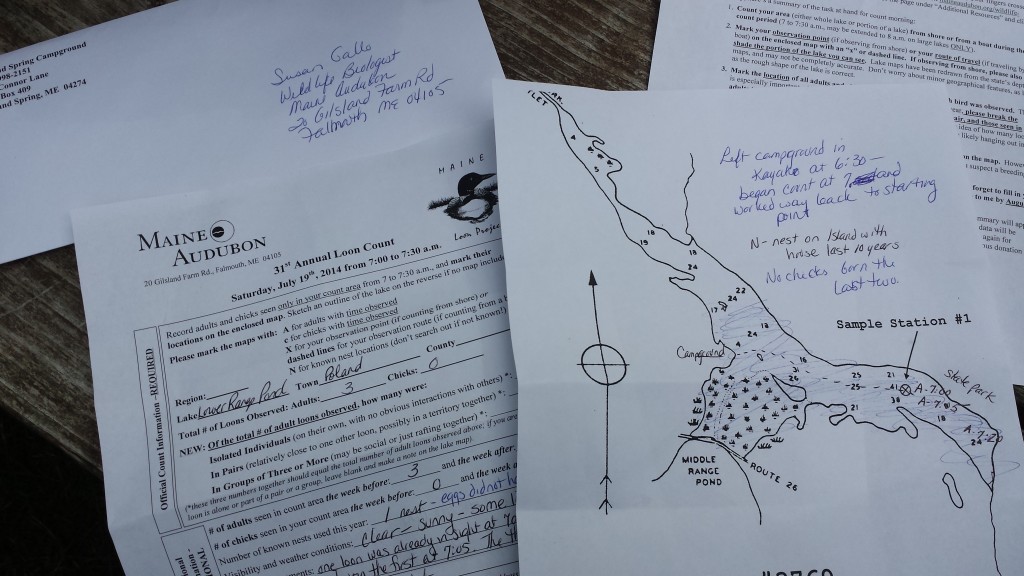 nd Spring Campground
98-2151
Connor Lane
Box 409
and Spring, ME 04274
Susan Gallo
Wildlife Biologist
Maine Audubon
20 Gilsland Farm Rd
Falmouth ME 04105
MAINE
MAINE
AUDUBON
20 Gilsland Farm Rd., Falmouth, ME 04105
Loon Projec
31st Annual Loon Count
Saturday, July 19th, 2014 from 7:00 to 7:30 a.m.
Official Count Information -REQUIRED
Record adults and chicks seen only in your count area from 7 to 7:30 a.m., and mark their
locations on the enclosed map. Sketch an outline of the lake on the reverse if no map include
Please mark the maps with: A for adults with time observed
c for chicks with time observed
X for your observation point (if counting from shore) or
dashed lines for your observation route (if counting from a b
N for known nest locations (don't search out if not known!)
Region:
Lake Lower Range Pond Town Poland County
Total # of Loons Observed: Adults: 3 Chicks: 0
NEW: Of the total # of adult loons observed, how many were:
Isolated Individuals (on their own, with no obvious interactions with others) *:
In Pairs (relatively close to one other loon, possibly in a territory together) *:
In Groups of Three or More (may be social or just rafting together) *:
(*these three numbers together should equal the total number of adult loons observed above; if you are
loon is alone or part of a pair or a group, leave blank and make a note on the lake map).
# of adults seen in count area the week before: 3 and the week after
# of chicks seen in your count area the week before: 0 and the week a
Number of known nests used this year: 1 nest - eggs did not h
Visibility and weather conditions: Clear - Sunny - some
ments: one loon was already in sight at 7:0
the first at 7:05. The th
INLET
4
5
18
19
18
24
22
17
24
4
24
13
16
31
26
25
25
21
41
38
21
18
24
Left campground in
Kayaks at 6:30 -
began count at 7 and
worked way back to starting
point
N- nest on Island with
house last 10 years
No chicks born the
last two.
Sample Station #1
Campground
State Park
A-7:00
A-7:05
A 7:20
MIDDLE
RANGE
POND
ROUTE 26
#3760
page under "Additional Resources" and cli
summary of the task at hand for count morning:
1. Count your area (either whole lake or portion of a lake) from shore or from a boat during the
count period (7 to 7:30 a.m., may be extended to 8 a.m. on large lakes ONLY).
2. Mark your observation point (if observing from shore) or your route of travel (if traveling by
boat) on the enclosed map with an "x" or dashed line. If observing from shore, please also
shade the portion of the lake you can see. Lake maps have been redrawn from the state's depth
maps, and may not be completely accurate. Don't worry about minor geographical features, as
as the rough shape of the lake is correct.
3. Mark the location of all adults a
is especially importan
h bird was observed. T
ear, please break the
air, and those seen in
idea of how many loo
likely hanging out in
on the map. Howe
suspect a breedin
forget to fill in
to me by Augu
mmary will ap
data will be
again for
us donation